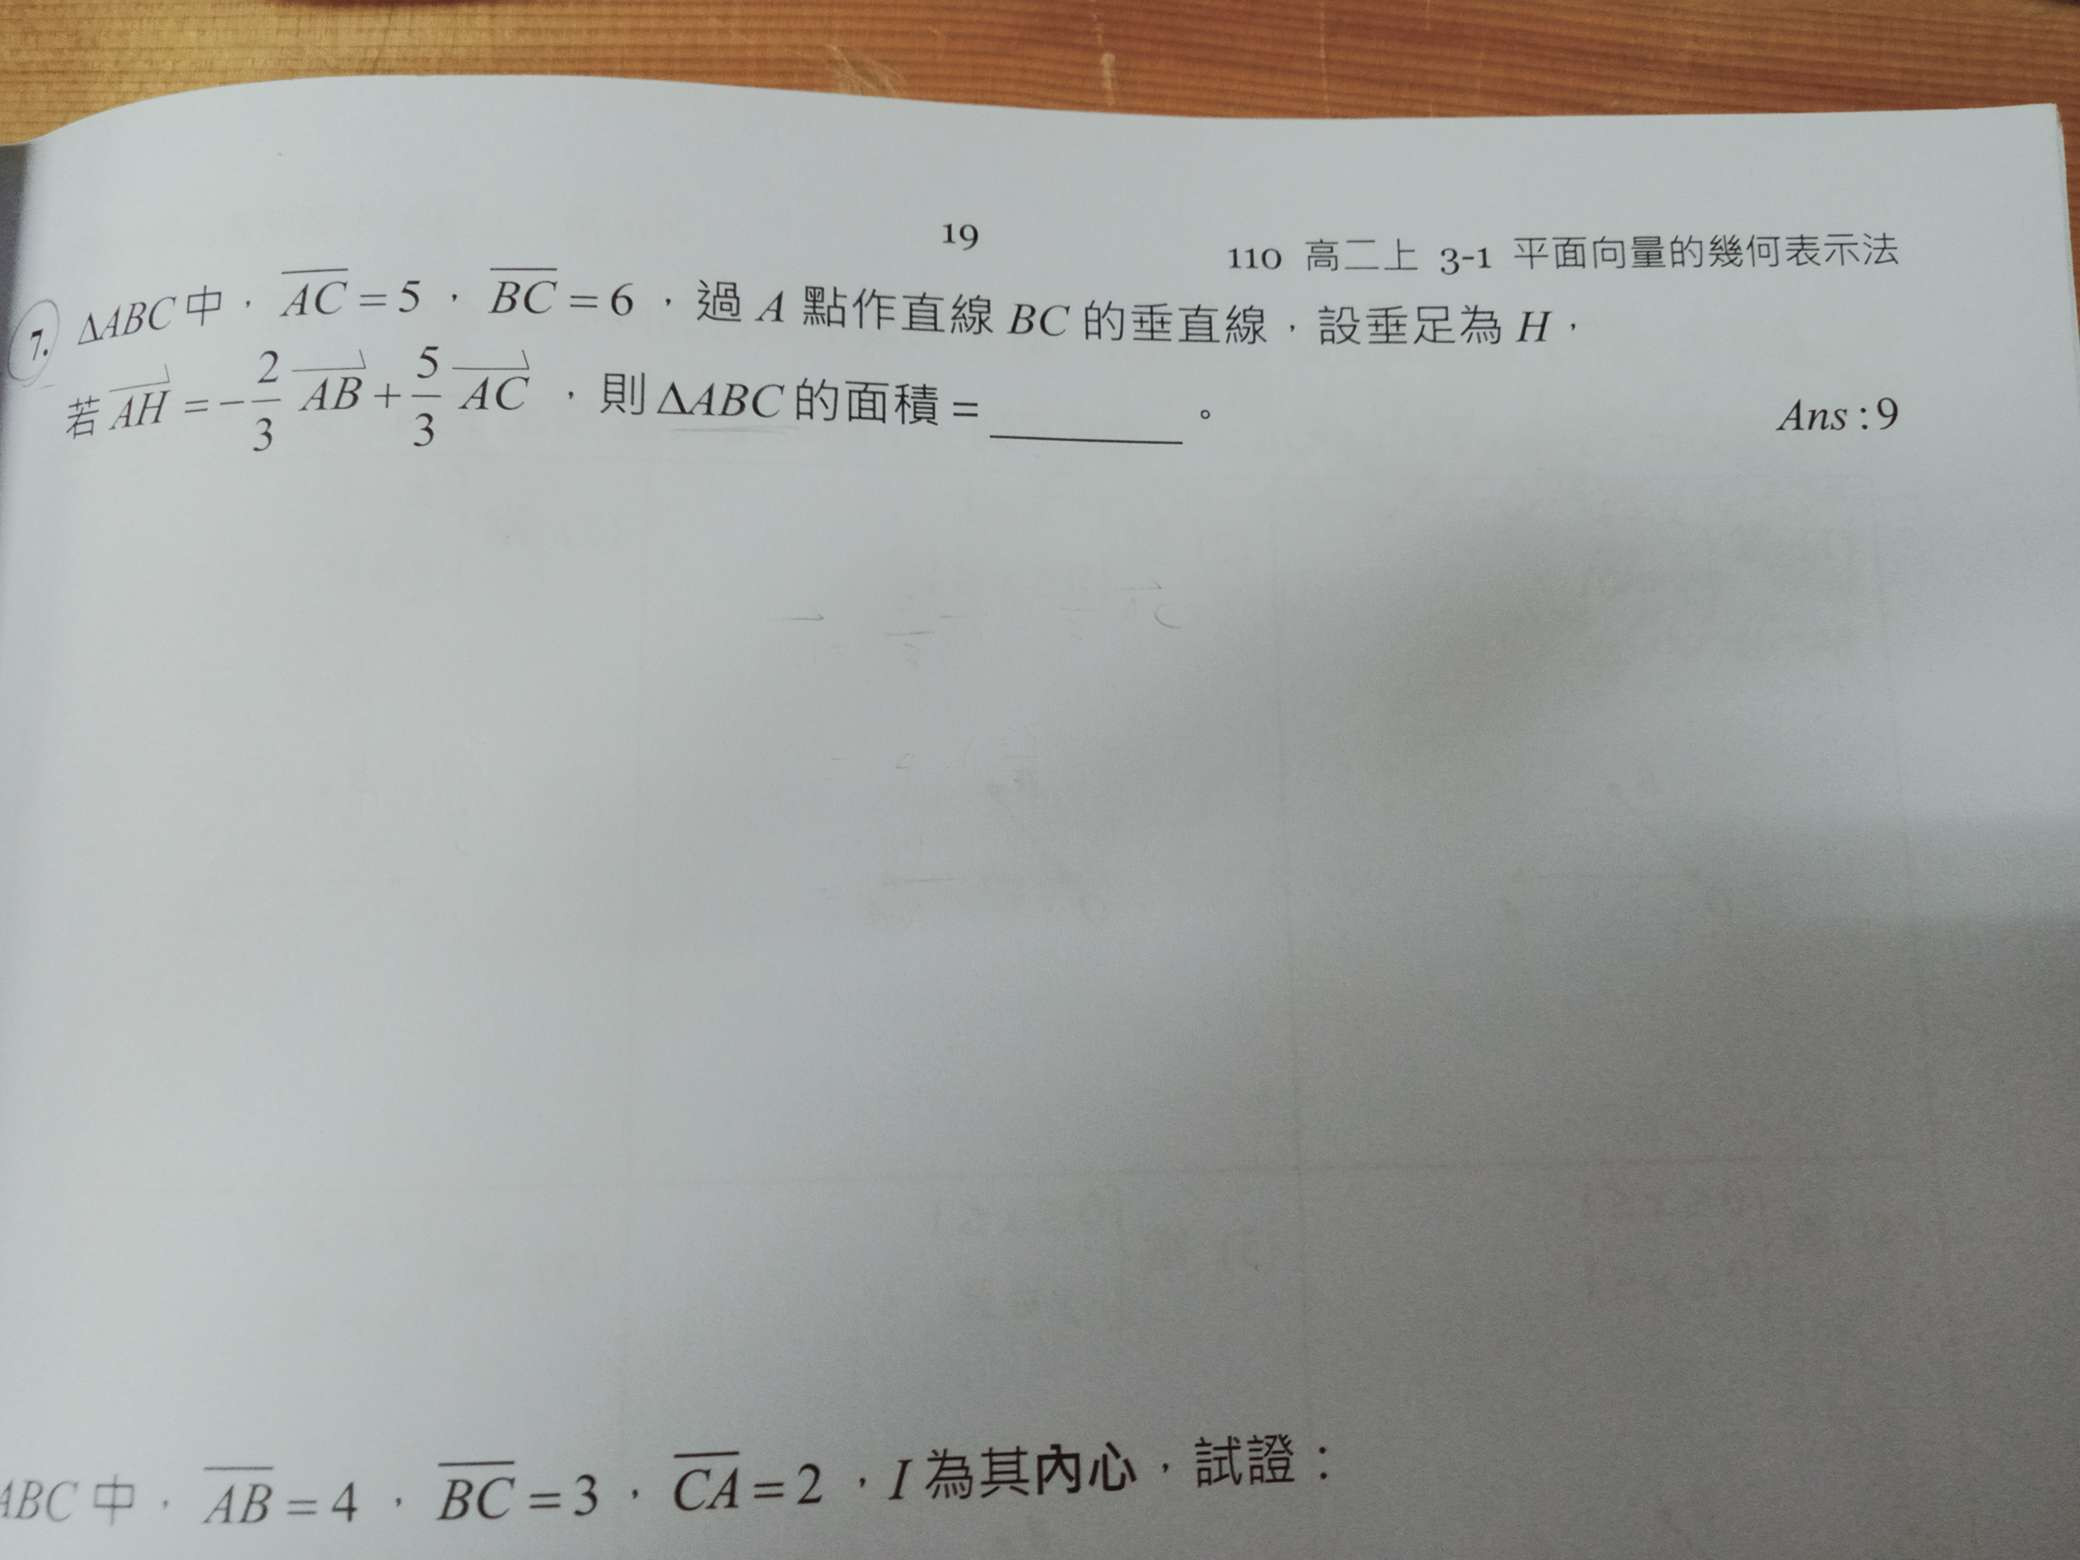 19
110 高二上 3-1 平面向量的幾何表示法
7. ΔABC 中，AC = 5，BC = 6，過 A 點作直線 BC 的垂直線，設垂足為 H，
若 AH = -2/3 AB + 5/3 AC，則 ΔABC 的面積 = ________。 Ans : 9
ABC 中，AB = 4，BC = 3，CA = 2，I 為其內心，試證：